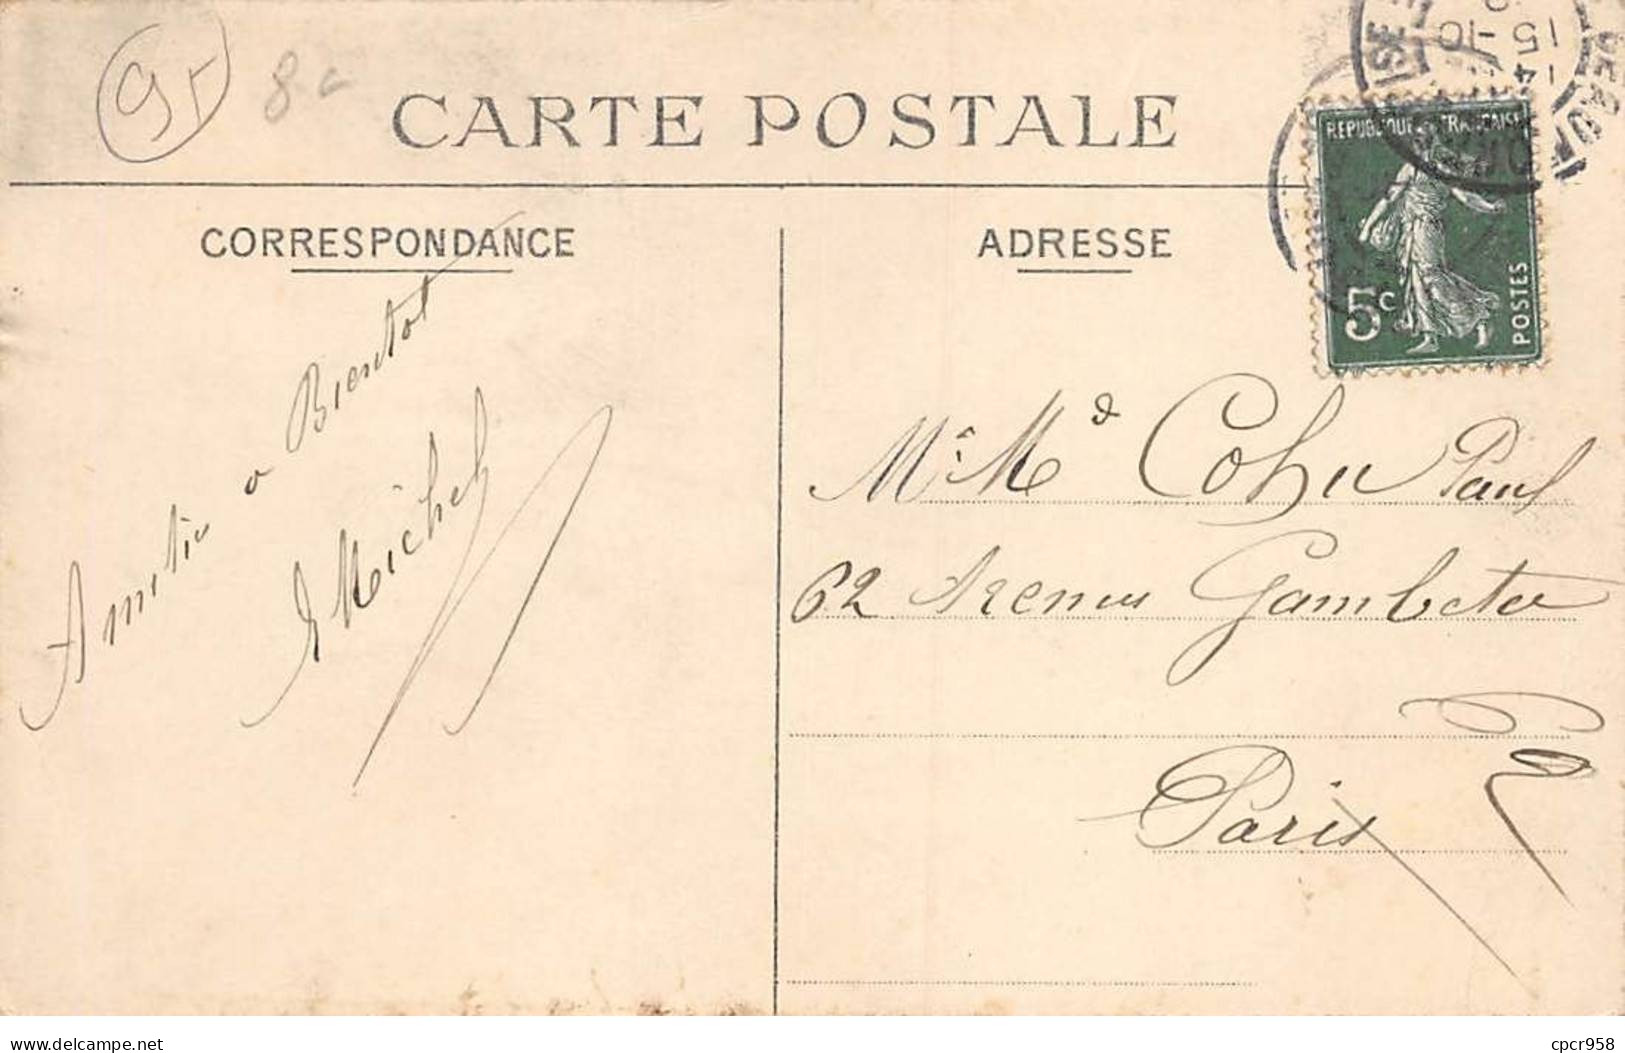 95
8
CARTE POSTALE
CORRESPONDANCE
ADRESSE
REPUBLIQUE FRANÇAISE
5c
POSTES
15 -10
Amitié a Bientot
Michel
Mr Md Cohu Paul
62 Avenue Gambetta
Paris
delcampe.net
cpcr958